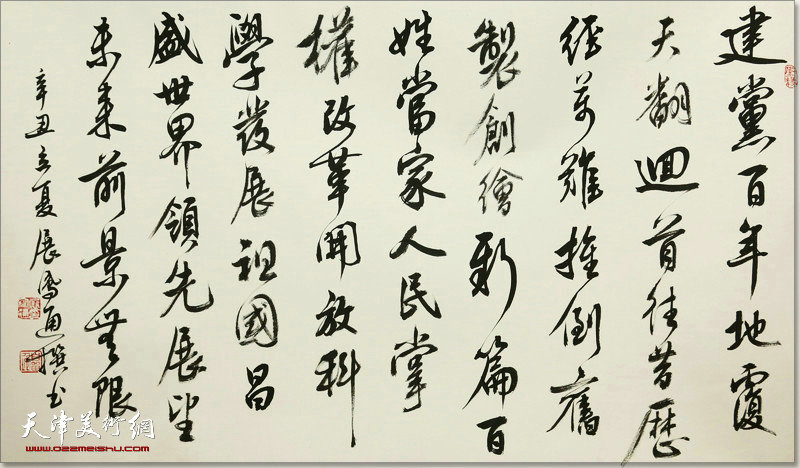 建黨百年地覆
天翻迴首往昔歷
經萬難推倒舊
製創繪新篇百
姓當家人民掌
權改革開放科
學發展祖國昌
盛世界領先展望
未来前景無限
辛丑立夏展鳳通撰书
天津美術網
www.022meishu.com